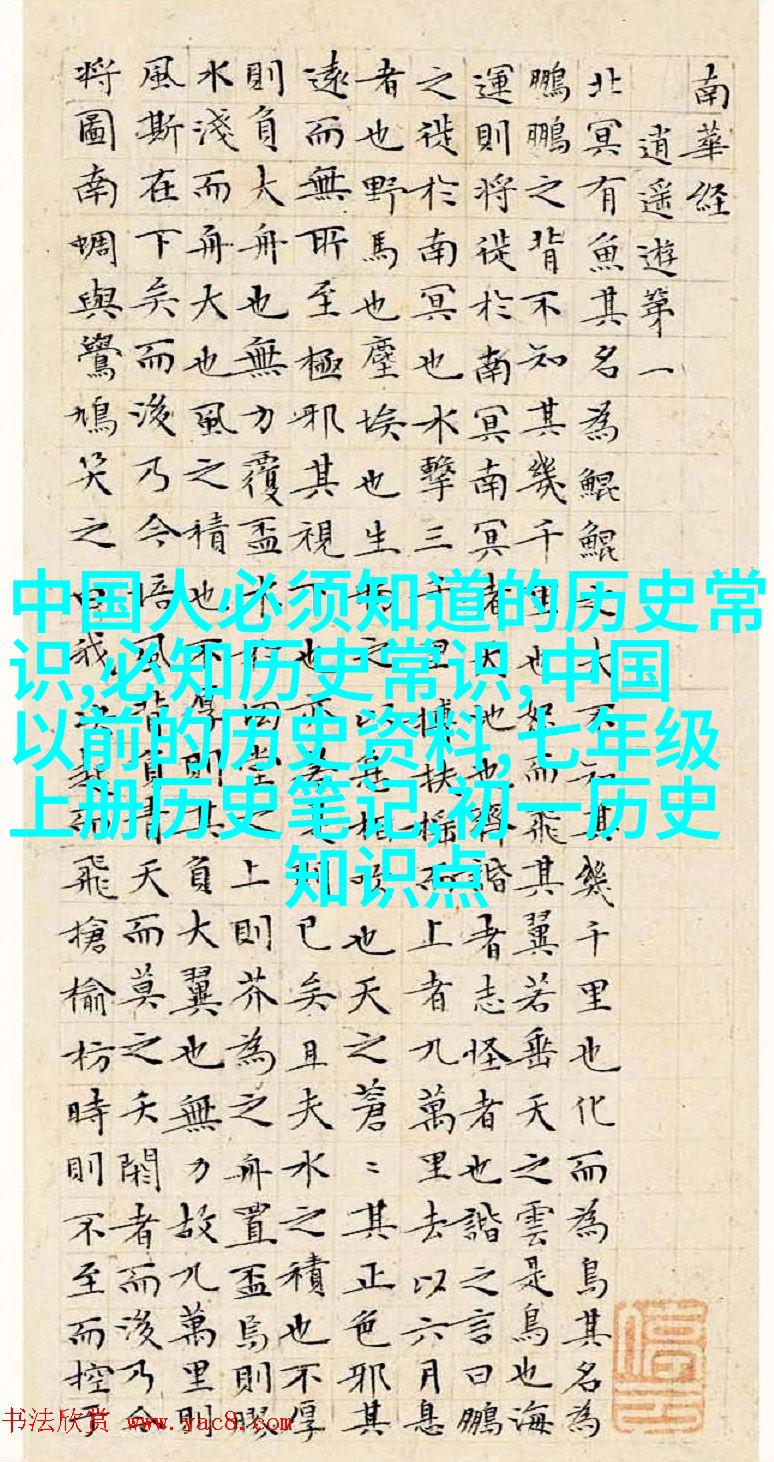 南華経
逍遥遊第一
北冥有魚其名為鯤鯤之大不知其幾千里也化而為鳥其名為
鵬鵬之背不知其幾千里也怒而飛其翼若垂天之雲是鳥也海
運則将徙於南冥南冥者天池也齊諧者志怪者也諧之言曰鵬
之徙於南冥也水擊三千里摶扶搖而上者九萬里去以六月息
者也野馬也塵埃也生物之以息相吹也天之蒼〻其正色邪其
遠而無所至極邪其視下也亦若是則已矣且夫水之積也不厚
則負大舟也無力覆盃水於坳堂之上則芥為之舟置盃焉則膠
水淺而舟大也風之積也不厚則其負大翼也無力故九萬里則
風斯在下矣而後乃今培風背負青天而莫之夭閼者而後乃今
将圖南蜩與鷽鳩笑之曰我決起而飛搶榆枋時則不至而控於
中国人必须知道的历史常
识,必知历史常识,中国
以前的历史资料,七年级
上册历史笔记,初一历史
知识点
书法欣赏 www.yac8.com